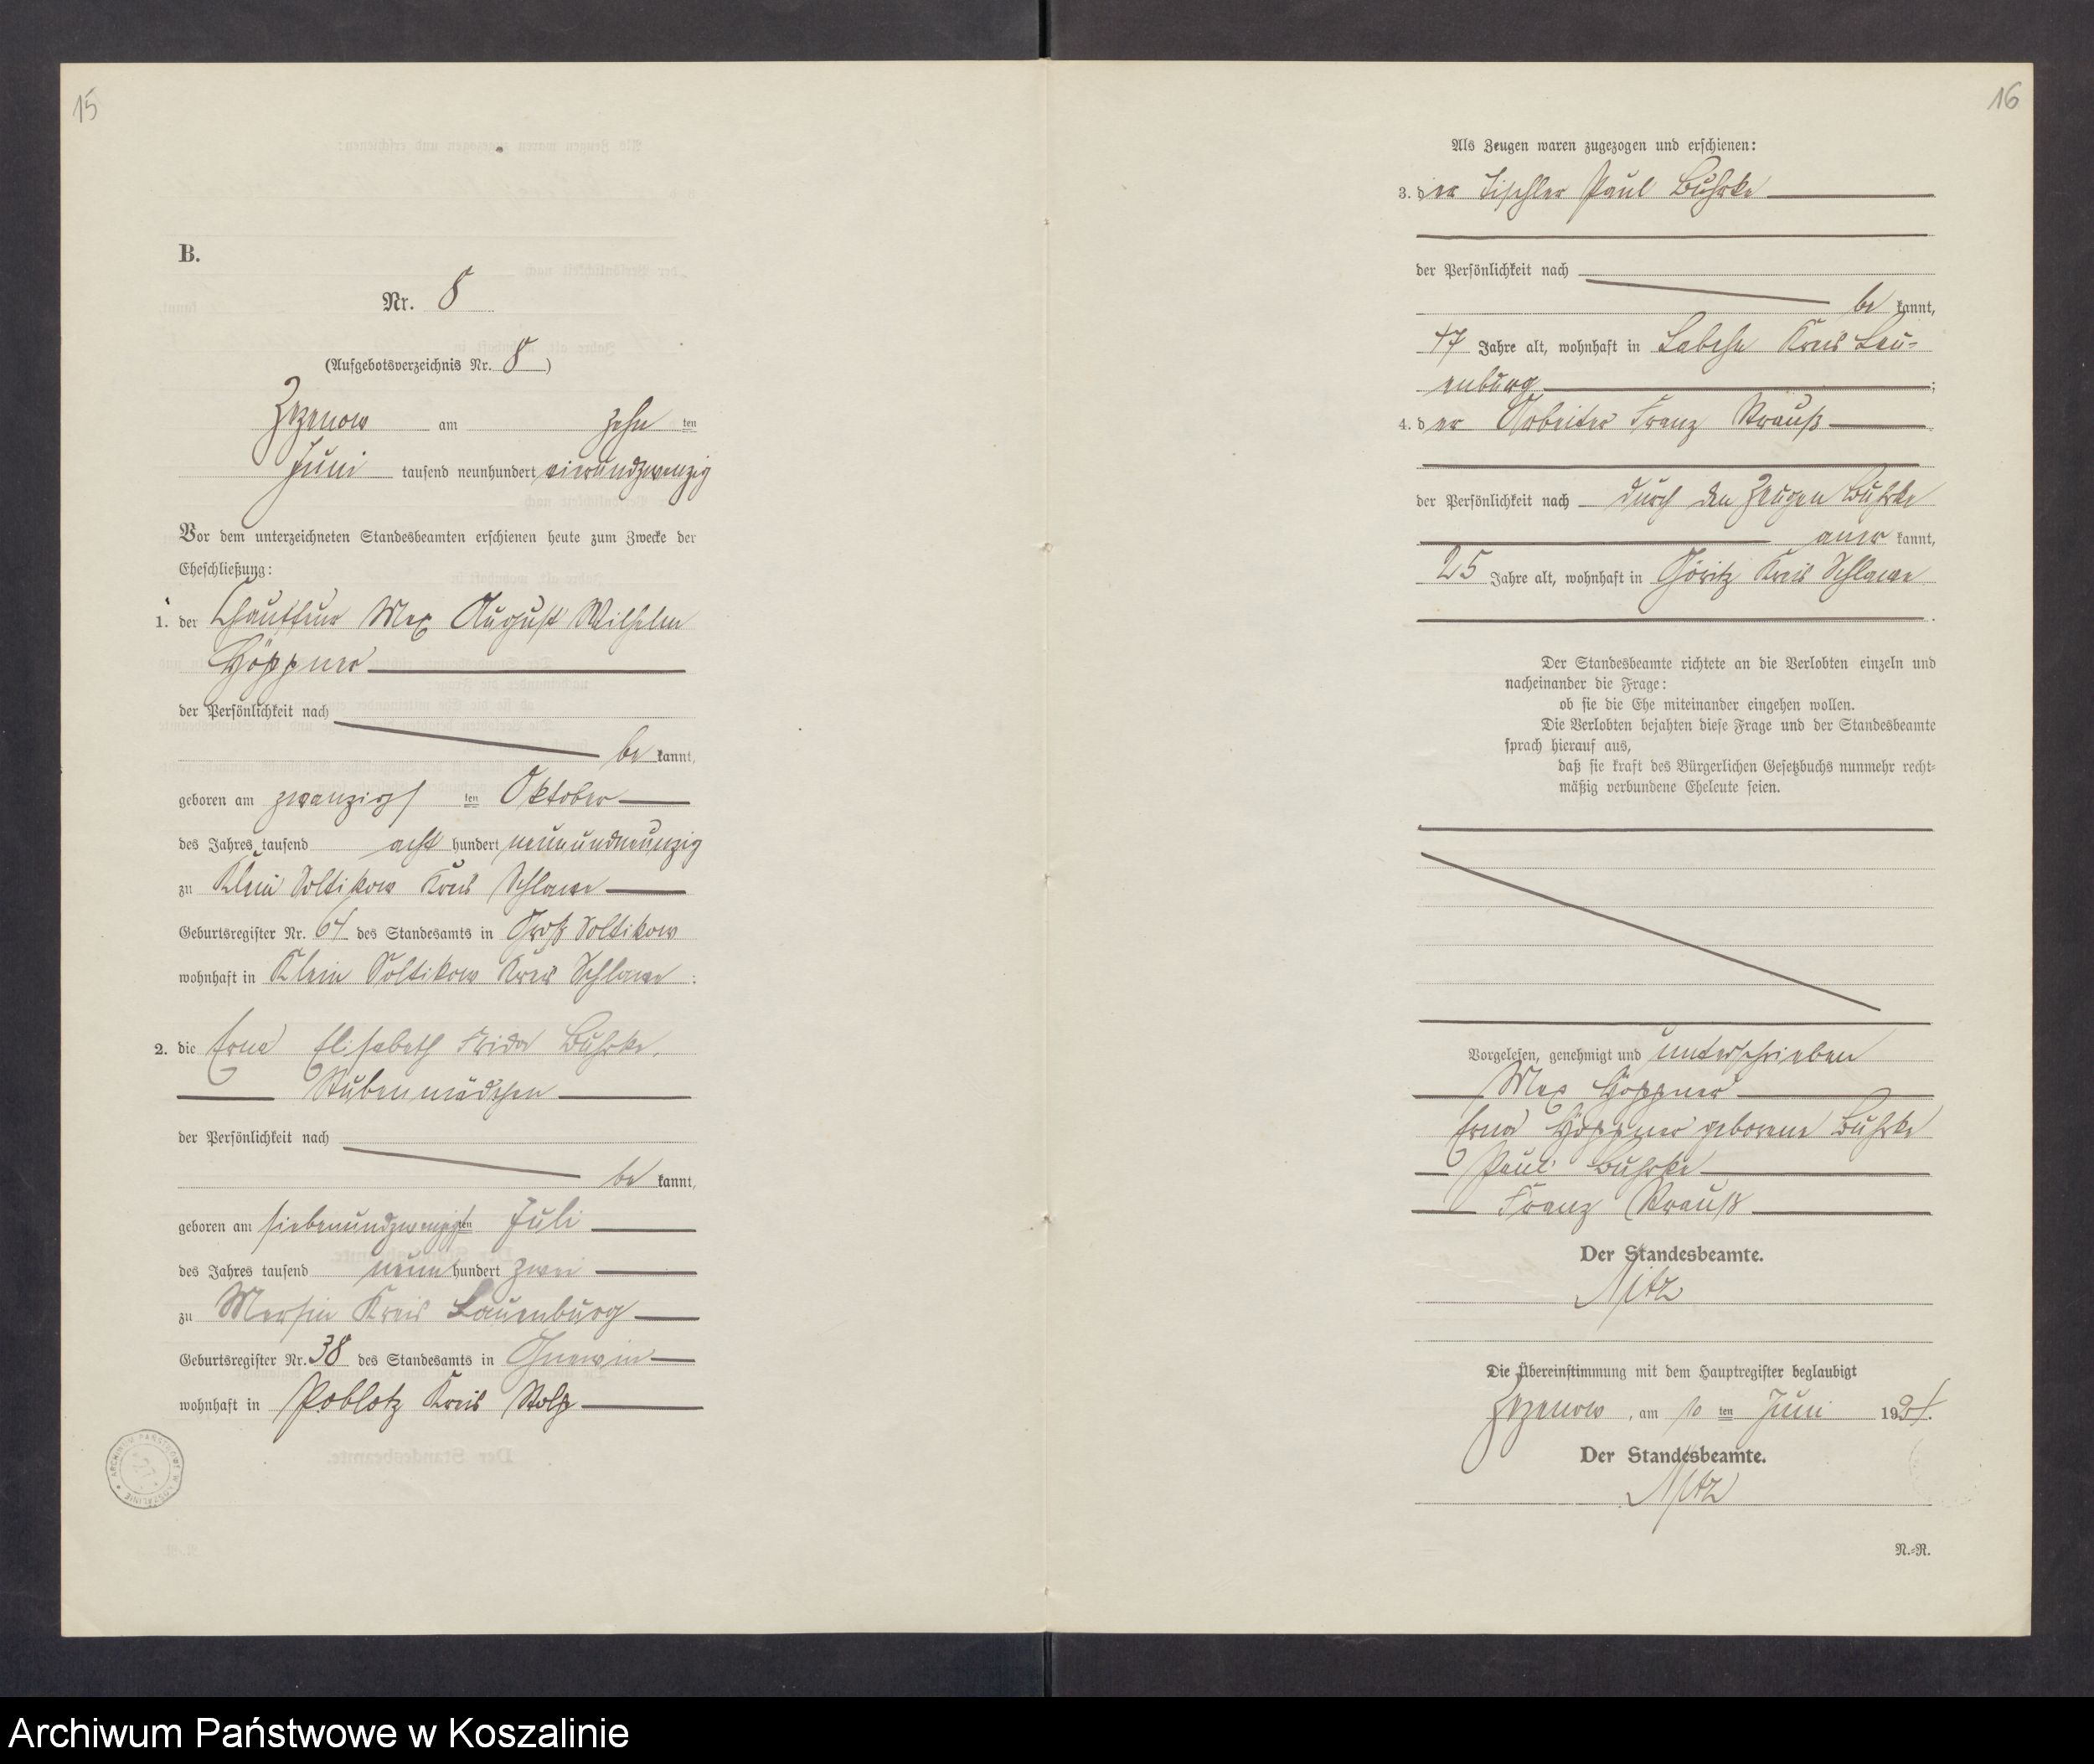 15
B.
Nr. 8
(Aufgebotsverzeichnis Nr. 8)
Zezenow am zehn ten
Juni tausend neunhundert
Vor dem unterzeichneten Standesbeamten erschienen heute zum Zwecke der
Eheschließung:
1. der Chauffeur Max August Wilhelm
Höppner
der Persönlichkeit nach
be kannt,
geboren am zwanzigs ten Oktober
des Jahres tausend acht hundert neunundneunzig
zu Klein Soltikow Kreis Schlawe
Geburtsregister Nr. des Standesamts in Groß Soltikow
wohnhaft in Klein Soltikow Kreis Schlawe :
2. die Erna Elisabeth Frida Buhrke,
Stubenmädchen
der Persönlichkeit nach
be kannt,
geboren am siebenundzwanzigs ten Juli
des Jahres tausend neun hundert zwei
zu Mersin Kreis Lauenburg
Geburtsregister Nr. 38 des Standesamts in Gnewin
wohnhaft in Poblotz Kreis Stolp
16
Als Zeugen waren zugezogen und erschienen:
3. der Tischler Paul Buhrke
der Persönlichkeit nach
be kannt,
47 Jahre alt, wohnhaft in Labehn Kreis Lau-
enburg ;
4. der Arbeiter Franz Strauß
der Persönlichkeit nach durch den Zeugen Buhrke
aner kannt,
25 Jahre alt, wohnhaft in Göritz Kreis Schlawe
.
Der Standesbeamte richtete an die Verlobten einzeln und
nacheinander die Frage:
ob sie die Ehe miteinander eingehen wollen.
Die Verlobten bejahten diese Frage und der Standesbeamte
sprach hierauf aus,
daß sie kraft des Bürgerlichen Gesetzbuchs nunmehr recht-
mäßig verbundene Eheleute seien.
Vorgelesen, genehmigt und unterschrieben
Max Höppner
Erna Höppner geborene Buhrke
Paul Buhrke
Franz Strauß
Der Standesbeamte.
Nitz
Die Übereinstimmung mit dem Hauptregister beglaubigt
Zezenow, am 10 ten Juni 19
Der Standesbeamte.
Nitz
N.-R.
ARCHIWUM PAŃSTWOWE W KOSZALINIE
Archiwum Państwowe w Koszalinie